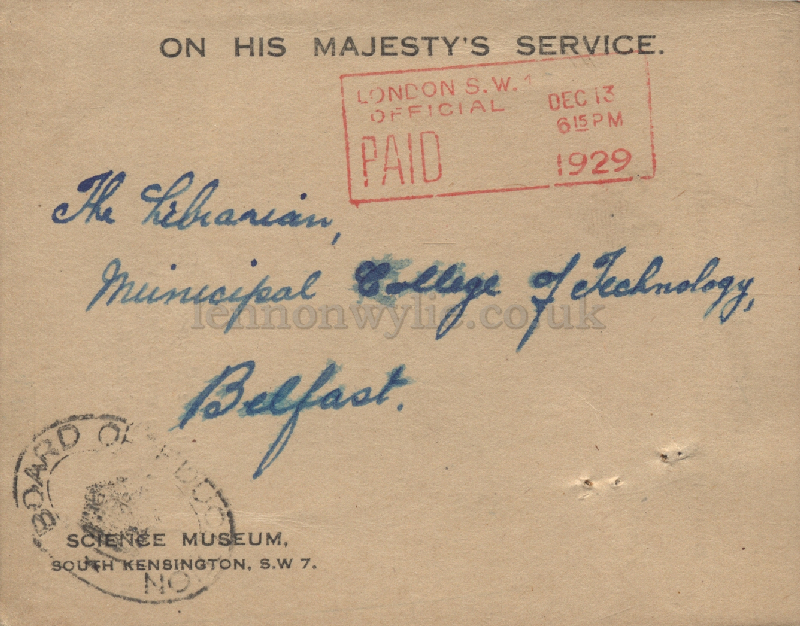 ON HIS MAJESTY'S SERVICE.
LONDON S.W.1
OFFICIAL
PAID
DEC 13
6 15 PM
1929
The Librarian,
Municipal College of Technology,
lennonwylie.co.uk
Belfast.
BOARD OF EDUC ON
SCIENCE MUSEUM,
SOUTH KENSINGTON, S.W 7.